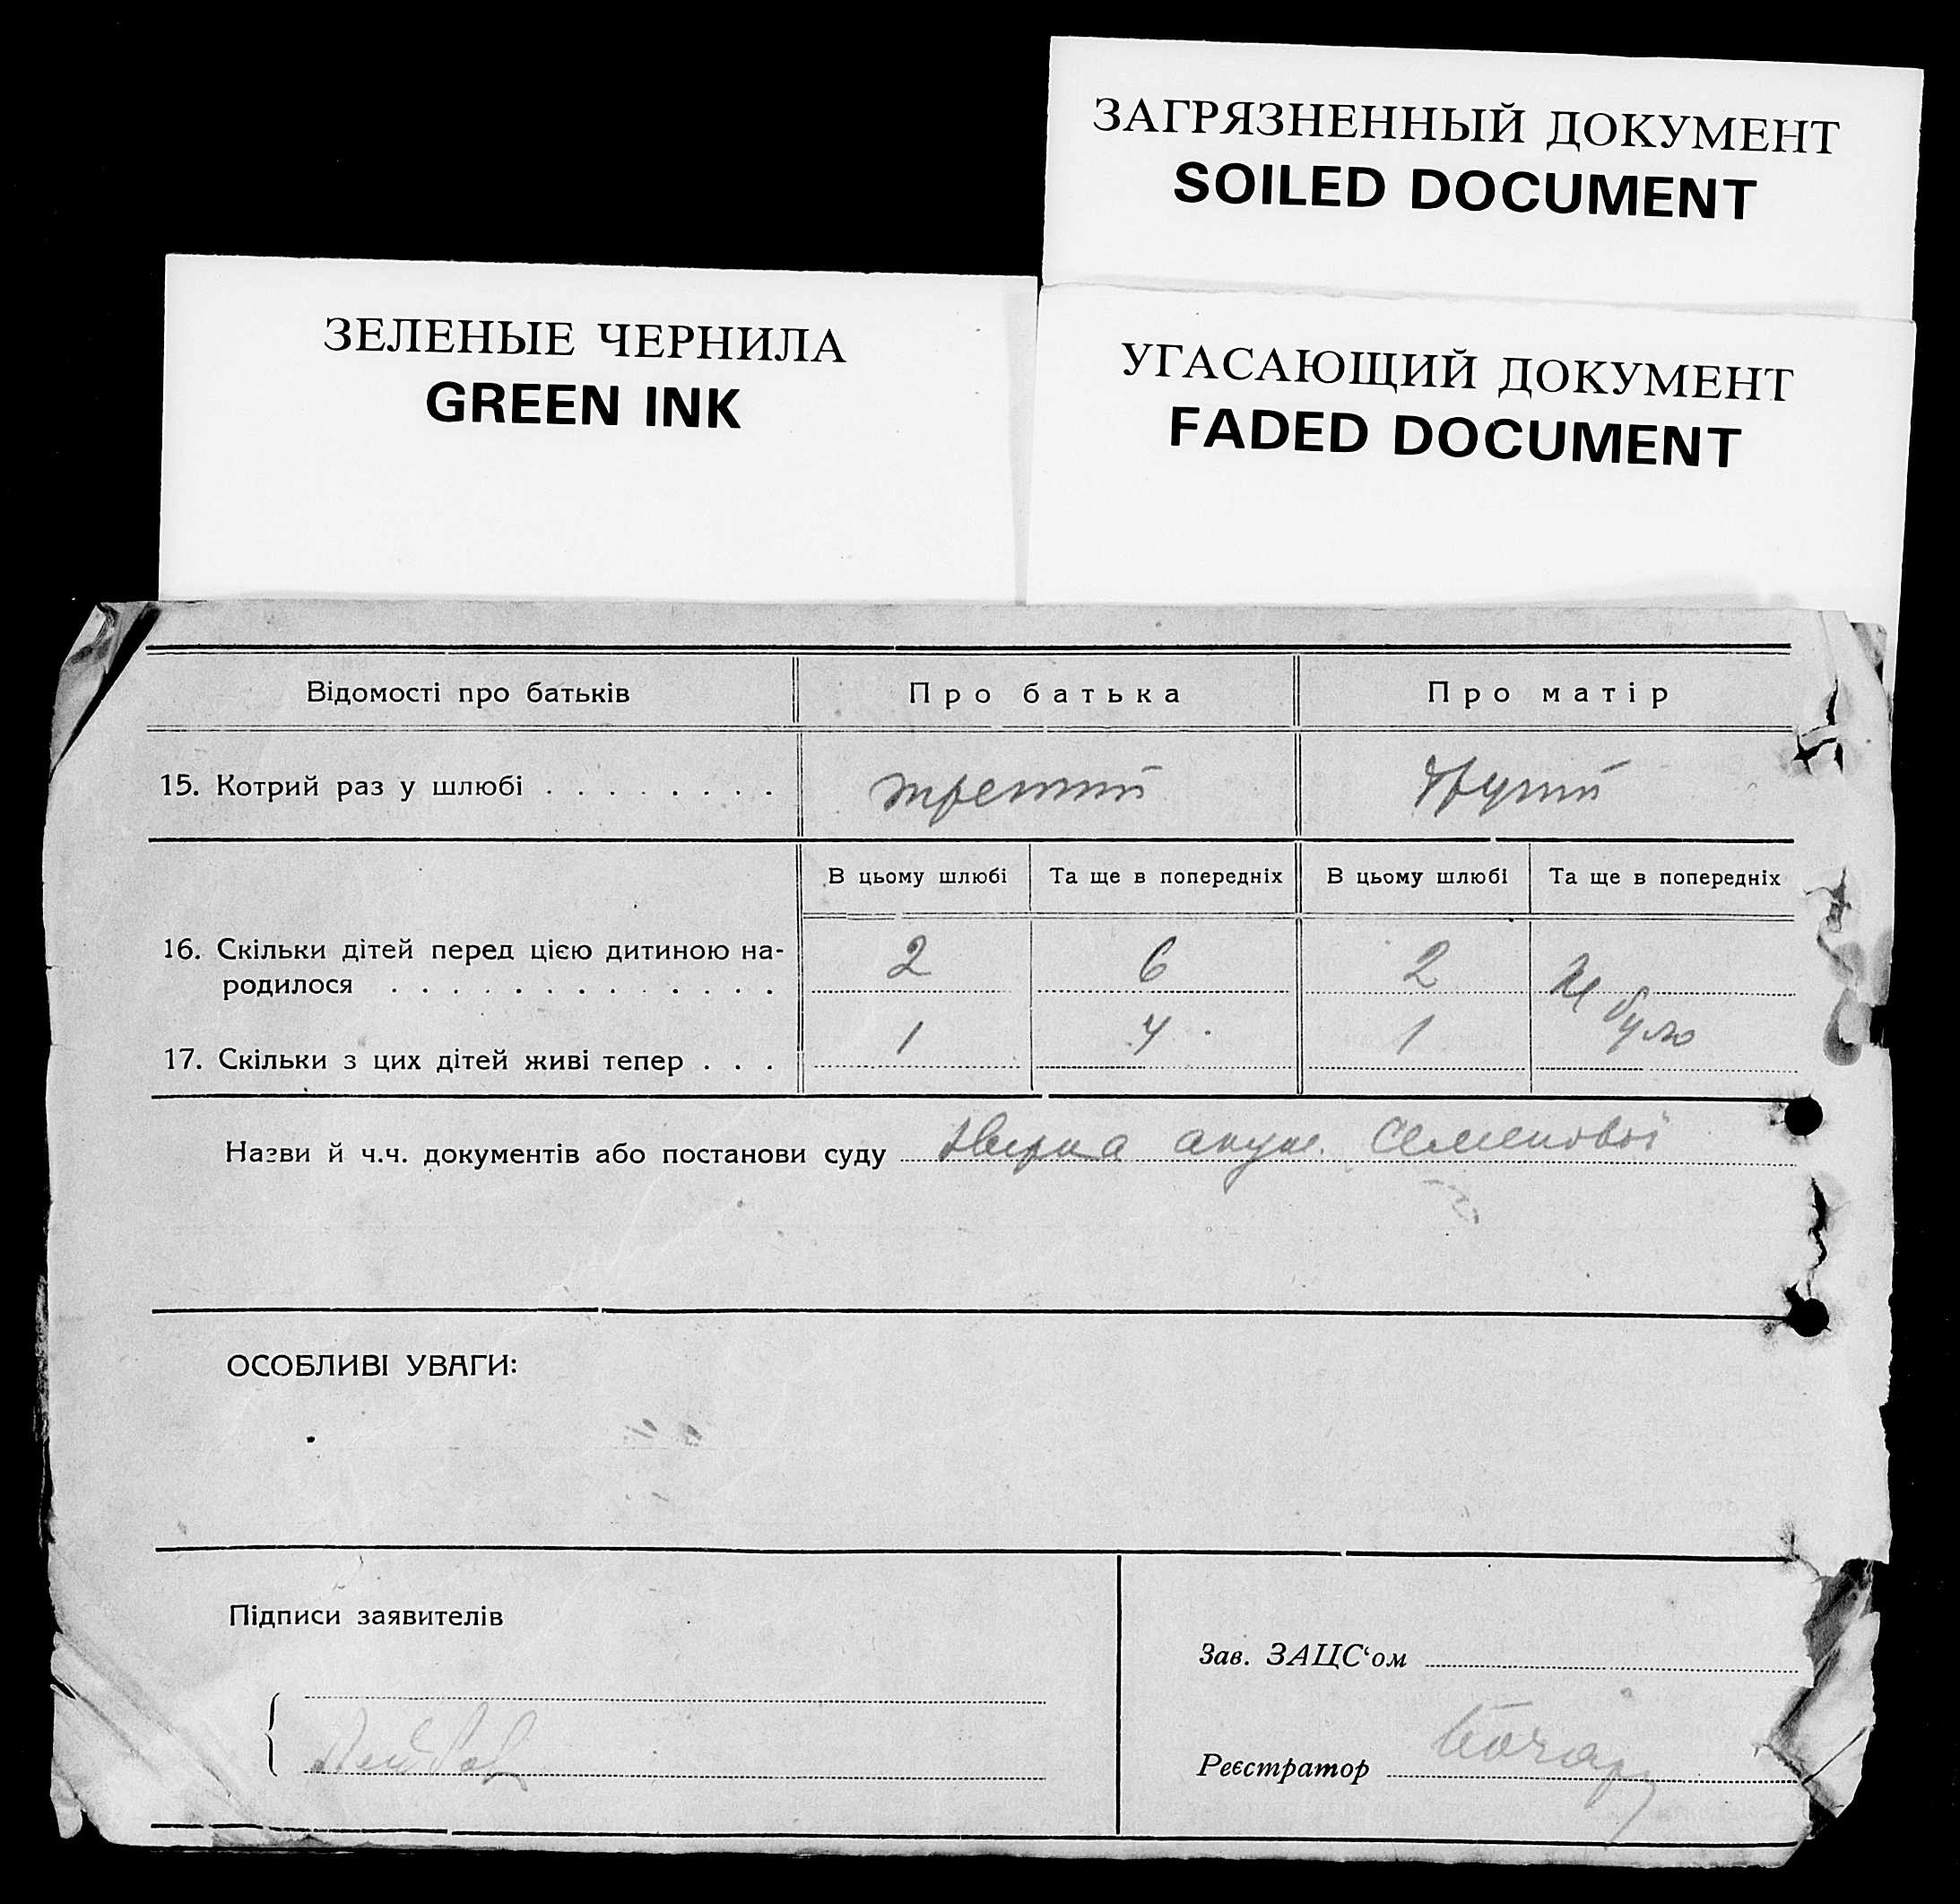 ЗАГРЯЗНЕННЫЙ ДОКУМЕНТ
SOILED DOCUMENT
ЗЕЛЕНЫЕ ЧЕРНИЛА
GREEN INK
УГАСАЮЩИЙ ДОКУМЕНТ
FADED DOCUMENT
Відомості про батьків Про батька Про матір
15. Котрий раз у шлюбі . . . . . . . . третий другий
В цьому шлюбі Та ще в попередніх В цьому шлюбі Та ще в попередніх
16. Скільки дітей перед цією дитиною на-
родилося . . . . . . . . . . . . . 2 6 2
17. Скільки з цих дітей живі тепер . . . 1 4 1 було
Назви й ч.ч. документів або постанови суду акуш. Семенової
ОСОБЛИВІ УВАГИ:
Підписи заявителів
Зав. ЗАЦС‘ом
Реєстратор